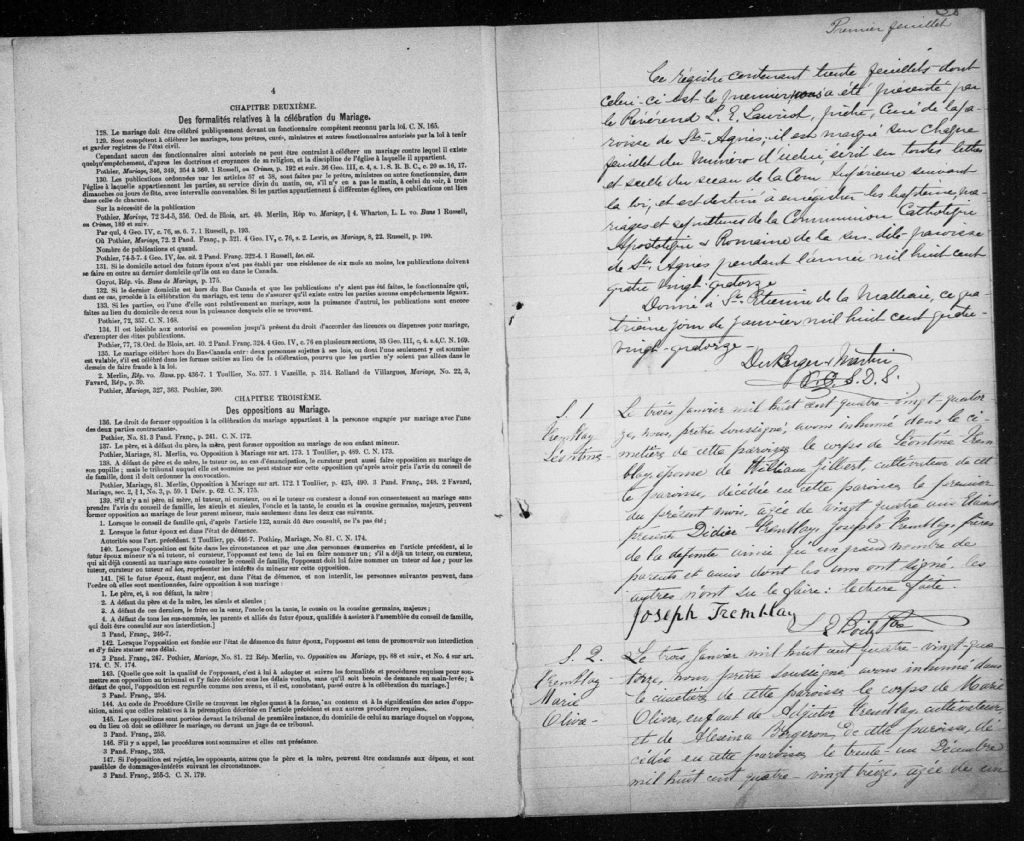 4
CHAPITRE DEUXIÈME.
Des formalités relatives à la célébration du Mariage.
128. Le mariage doit être célébré publiquement devant un fonctionnaire compétent reconnu par la loi. C. N. 165.
129. Sont compétents à célébrer les mariages, tous prêtres, curés, ministres et autres fonctionnaires autorisés par la loi à tenir
et garder registres de l'état civil.
Cependant aucun des fonctionnaires ainsi autorisés ne peut être contraint à célébrer un mariage contre lequel il existe
quelqu'empêchement, d'après les doctrines et croyances de sa religion, et la discipline de l'église à laquelle il appartient.
Pothier, Mariage, 346, 349, 354 à 360. 1 Russell, on Crimes, p. 192 et suiv. 36 Geo. III, c. 4, s. 1. S. R. B. C., c. 20 ss. 16, 17.
130. Les publications ordonnées par les articles 57 et 58, sont faites par le prêtre, ministres ou autre fonctionnaire, dans
l'église à laquelle appartiennent les parties, au service divin du matin, ou, s'il n'y en a pas le matin, à celui du soir, à trois
dimanches ou jours de fête, avec intervalle convenables. Si les parties appartiennent à différentes églises, ces publications ont lieu
dans celle de chacune.
Sur la nécessité de la publication
Pothier, Mariage, 72 3-4-5, 356. Ord. de Blois, art. 40. Merlin, Rép vo. Mariage, § 4. Wharton, L. L. vo. Bans 1 Russell,
on Crimes, 189 et suiv.
Par qui, 4 Geo. IV, c. 76, ss. 6. 7. 1 Russell, p. 193.
Où Pothier, Mariage, 72. 2 Pand. Franç., p. 321. 4 Geo. IV, c. 76, s. 2. Lewis, on Mariage, 8, 22. Russell, p. 190.
Nombre de publications et quand.
Pothier, 74-5-7. 4 Geo. IV, loc. cit. 2 Pand. Franç. 322-4. 1 Russell, loc. cit.
131. Si le domicile actuel des futurs époux n'est pas établi par une résidence de six mois au moins, les publications doivent
se faire en outre au dernier domicile qu'ils ont eu dans le Canada.
Guyot, Rép. vis. Bans de Mariage, p. 175.
132. Si le dernier domicile est hors du Bas Canada et que les publications n'y aient pas été faites, le fonctionnaire qui,
dans ce cas, procède à la célébration du mariage, est tenu de s'assurer qu'il existe entre les parties aucuns empêchements légaux.
133. Si les parties, ou l'une d'elles sont relativement au mariage, sous la puissance d'autrui, les publications sont encore
faites au lieu du domicile de ceux sous la puissance desquels elle se trouvent.
Pothier, 72, 357. C. N. 168.
134. Il est loisible aux autorités en possession jusqu'à présent du droit d'accorder des licences ou dispenses pour mariage,
d'exempter des dites publications.
Pothier, 77, 78. Ord. de Blois, art. 40. 2 Pand. Franç. 324. 4 Geo. IV, c. 76 en plusieurs sections, 35 Geo. III, c. 4. s. 4, C. N. 169.
135. Le mariage célébré hors du Bas-Canada entre deux personnes sujettes à ses lois, ou dont l'une seulement y est soumise
est valable, s'il est célébré dans les formes usitées au lieu de la célébration, pourvu que les parties n'y soient pas allées dans le
dessein de faire fraude à la loi.
2. Merlin, Rép. vo. Bans, pp. 436-7. 1 Toullier, No. 577. 1 Vazeille, p. 314. Rolland de Villargues, Mariage, No. 22, 3,
Favard, Rép., p. 50.
Pothier, Mariage, 327, 363. Pochier, 390.
CHAPITRE TROISIÈME.
Des oppositions au Mariage.
136. Le droit de former opposition à la célébration du mariage appartient à la personne engagée par mariage avec l'une
des deux parties contractantes.
Pothier, No. 81. 3 Pand. Franç., p. 241. C. N. 172.
137. Le père, et à défaut du père, la mère, peut former opposition au mariage de son enfant mineur.
Pothier, Mariage, 81. Merlin, vo. Opposition à Mariage sur art. 173. 1 Toullier, p. 489. C. N. 173.
138. A défaut de père et de mère, le tuteur ou, au cas d'émancipation, le curateur peut aussi faire opposition au mariage de
son pupille; mais le tribunal auquel elle est soumise ne peut statuer sur cette opposition qu'après avoir pris l'avis du conseil de
famille, dont il doit ordonner la convocation.
Pothier, Mariage, 81. Merlin Opposition à Mariage sur art. 172. 1 Toullier, p. 425, 490. 3 Pand. Franç., 248. 2 Favard,
Mariage, sec. 2, § 1, No. 3, p. 59. 1 Delv. p. 62. C. N. 175.
139. S'il n'y a ni père, ni mère, ni tuteur, ni curateur, ou si le tuteur ou curateur a donné son consentement au mariage sans
prendre l'avis du conseil de famille, les aïeuls et aïeules, l'oncle et la tante, le cousin et la cousine germains, majeurs, peuvent
former opposition au mariage de leur parent mineur, mais seulement dans les deux cas suivants:
1. Lorsque le conseil de famille qui, d'après l'article 122, aurait dû être consulté, ne l'a pas été;
2. Lorsque le futur époux est dans l'état de démence.
Autorités sous l'art. précédent. 2 Toullier, pp 446-7. Pothier, Mariage, No. 81. C. N. 174.
140. Lorsque l'opposition est faite dans les circonstances et par une des personnes énumérées en l'article précédent, si le
futur époux mineur n'a ni tuteur, ni curateur, l'opposant est tenu de lui en faire nommer un; s'il a déjà un tuteur, ou curateur,
qui ait déjà consenti au mariage sans consulter le conseil de famille, l'opposant doit lui faire nommer un tuteur ad hoc; pour les
tuteur, ou curateur ad hoc, représenter les intérêts du mineur sur cette opposition.
141. [Si le futur époux, étant majeur, est dans l'état de démence, et non interdit, les personnes suivantes peuvent, dans
l'ordre où elles sont mentionnées, faire opposition à son mariage:
1. Le père, et, à son défaut, la mère;
2. A défaut du père et de la mère, les aïeuls et aïeules;
3. A défaut de ces derniers, le frère ou la sœur, l'oncle ou la tante, le cousin ou la cousine germains, majeurs;
4. A défaut de tous les sus-nommés, les parents et alliés du futur époux, qualifiés à assister à l'assemblée du conseil de famille,
qui doit être consulté sur son interdiction.]
3 Pand. Franç., 246-7.
142. Lorsque l'opposition est fondée sur l'état de démence du futur époux, l'opposant est tenu de promouvoir son interdiction
et d'y faire statuer sans délai.
3 Pand. Franç., 247. Pothier, Mariage, No. 81. 22 Rép. Merlin, vo. Opposition au Mariage, pp. 88 et suiv., et No. 4 sur art.
174. C. N. 174.
143. [Quelle que soit la qualité de l'opposant, c'est à lui à adopter et suivre les formalités et procédures requises pour sou-
mettre son opposition au tribunal et l'y faire décider sous les délais voulus, sans qu'il soit besoin de demande en main-levée; à
défaut de quoi, l'opposition est regardée comme non avenue, et il est, nonobstant, passé outre à la célébration du mariage.]
3 Pand. Franç., 254.
144. Au code de Procédure Civile se trouvent les règles quant à la forme, au contenu et à la signification des actes d'oppo-
sition, ainsi que celles relatives à la péremption décrétée en l'article précédent et aux autres procédures requises.
145. Les oppositions sont portées devant le tribunal de première instance, du domicile de celui au mariage duquel on s'oppose,
ou du lieu où doit se célébrer le mariage, ou devant un juge de ce tribunal.
3 Pand. Franç., 253.
146. S'il y a appel, les procédures sont sommaires et elles ont préséance.
3 Pand. Franç., 253.
147. Si l'opposition est rejetée, les opposants, autres que le père et la mère, peuvent être condamnés aux dépens, et sont
passibles de dommages-intérêts suivant les circonstances.
3 Pand. Franç., 255-3. C. N. 179.
Premier feuillet
Ce régistre contenant trente feuillets dont
celui-ci est le premier, nous a été présenté par
le Révérend L. E. Lauriot, prêtre, Curé de la pa-
roisse de Ste Agnès; il est marqué sur chaque
feuillet du numéro d'icelui, écrit en toutes lettres
et scellé du sceau de la Cour Supérieure suivant
la loi, et est destiné à enrégistrer les baptêmes, ma-
riages et sépultures de la Communion Catholique
Apostolique & Romaine de la sus dite paroisse
de Ste Agnès pendant l'année mil huit cent
quatre vingt-quatorze
Donné à St. Etienne de la Malbaie, ce qua
trième jour de Janvier mil huit cent quatre-
vingt-quatorze -
DuBerger & Martin
P. C. S. D. S.
S. 1 Le trois Janvier mil huit cent quatre-vingt-quator
Tremblay ze, nous, prêtre soussigné, avons inhumé dans le ci
Léontine metière de cette paroisse le corps de Léontine Trem
blay, épouse de William Gilbert, cultivateur de cet
te paroisse, décédée en cette paroisse le premier
du présent mois, agée de vingt quatre ans. Etaient
présents Didier Tremblay, Joseph Tremblay, frères
de la défunte ainsi qu'un grand nombre de
parents et amis dont les uns ont signé, les
autres n'ont su le faire: lecture faite
Joseph Tremblay
S. 2. Le trois Janvier mil huit cent quatre-vingt-qua
Tremblay torze, nous prêtre soussigné avons inhumé dans
Marie le cimetière de cette paroisse le corps de Marie
Oliva- Oliva, enfant de Adjutor Tremblay, cultivateur
et de Alexina Bergeron, de cette paroisse, dé
cédée en cette paroisse le trente-un Décembre
mil huit cent quatre-vingt treize, agée de un